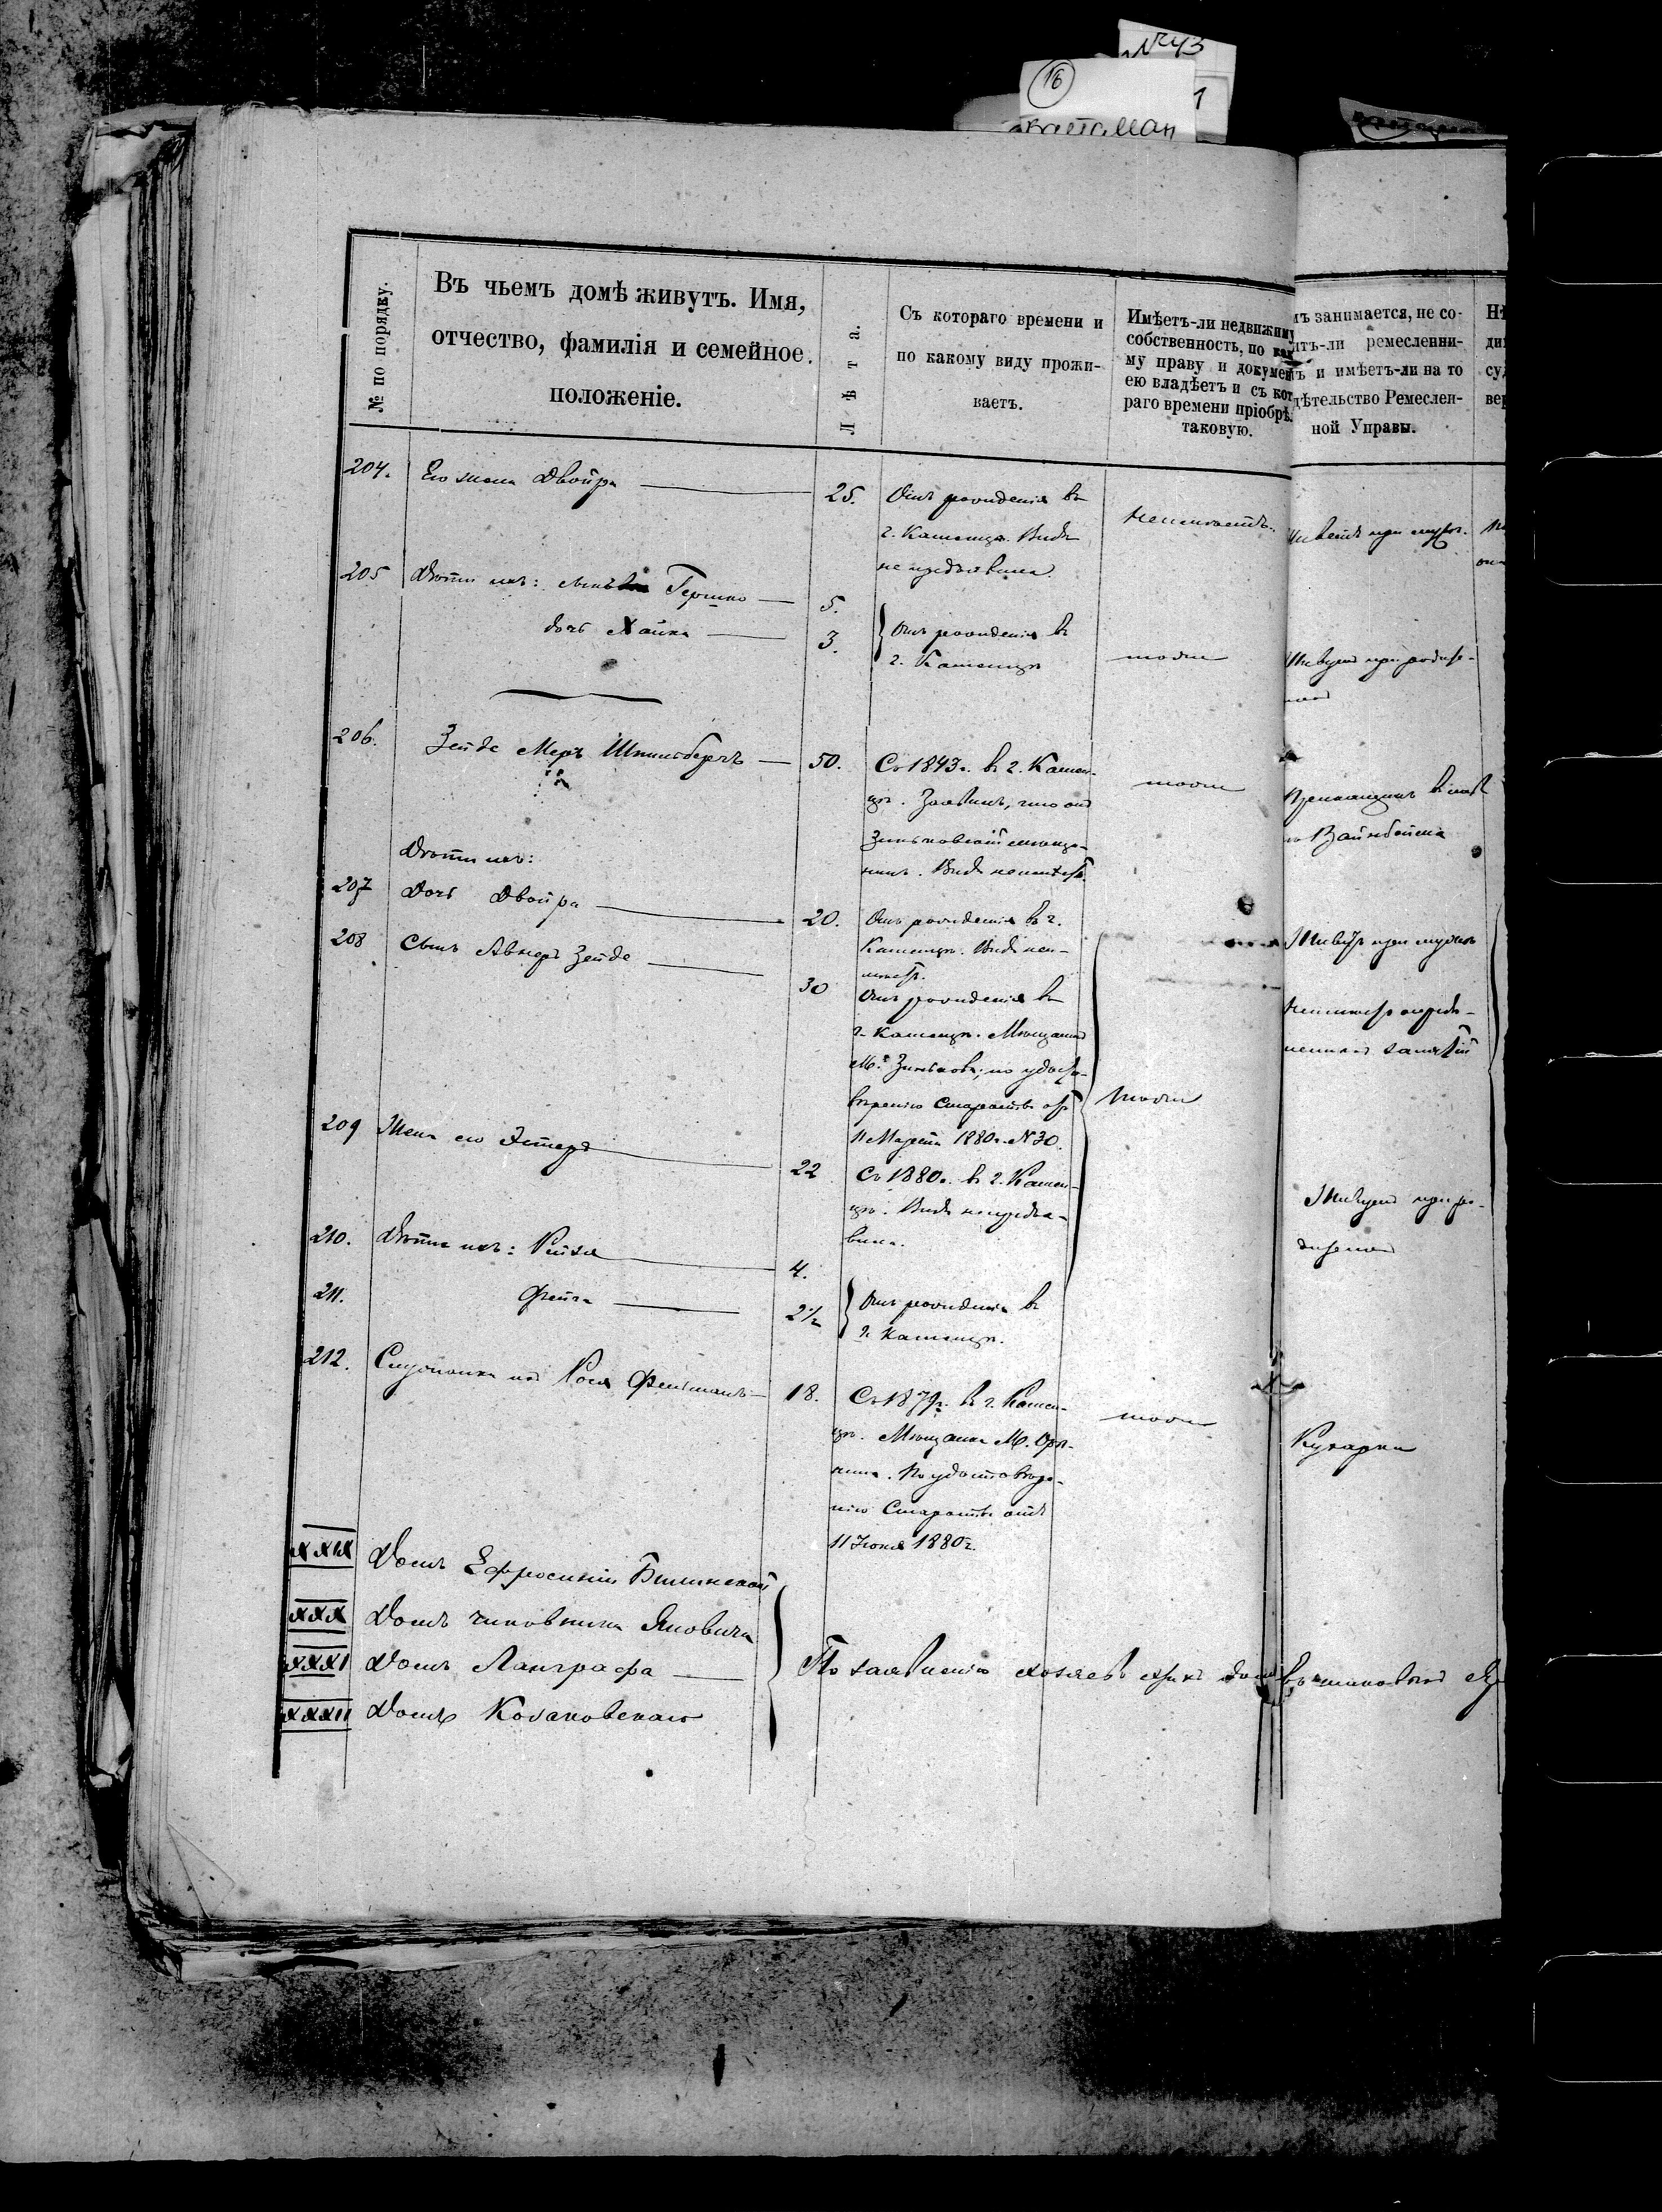 №43
16
1
№ по порядку.
Въ чьемъ домѣ живутъ. Имя,
отчество, фамилія и семейное
положеніе.
Лѣта.
Съ котораго времени и
по какому виду прожи-
ваетъ.
Имѣетъ-ли недвижиму
собственность, по как
му праву и докумен
ею владѣетъ и съ кот
раго времени пріобрѣ.
таковую.
мъ занимается, не со-
итъ-ли ремесленни-
ъ и имѣетъ-ли на то
дѣтельство Ремеслен-
ной Управы.
204. Его жена Двойра 25. Отъ рожденія въ
г. Каменцѣ. Видъ
не предъявила.
Неимѣетъ.
Живетъ при мужѣ.
205 Дѣти ихъ: сынъ Гершко 5.
дочь Хайка 3.
Отъ рожденія въ
г. Каменцѣ
тоже
Живутъ при родите-
206. Зейде Меръ Шпильбергъ 50. Съ 1843 г. въ г. Камен-
цѣ. Заявилъ, что онъ
Зиньковскій мѣща-
нинъ. Видъ
тоже
Дѣти ихъ:
207 Дочь Двойра 20. Отъ рожденія въ г.
Каменцѣ. Видъ неи-
мѣетъ.
208 Сынъ Авнеръ Зейде 30 Отъ рожденія въ
г. Каменцѣ. Мѣщанинъ
М. Зинькова, по удосто-
вѣренію Старосты отъ
11 Марта 1880 г. № 30.
тоже
Неимѣетъ опредѣ-
леннаго занятій
209 Жена его Эстеръ 22 Съ 1880 г. въ г. Камен-
цѣ. Видъ непредъя-
вила.
210. Дѣти ихъ: Рейзя 4.
211. Фейга 2½
Отъ рожденія въ
г. Каменцѣ.
Живутъ при ро-
дителяхъ
212. Служанка ихъ Рося Фельманъ 18. Съ 1879 г. въ г. Камен-
цѣ. Мѣщанка М.
По удостовѣре-
нію Старосты отъ
11 Іюня 1880 г.
тоже
Кухарка
XXIX Домъ Ефросиніи Билинской
XXX Домъ чиновника Яновича
XXXI Домъ Ланграфа
XXXII Домъ Козаковскаго
По заявленію хозяевъ